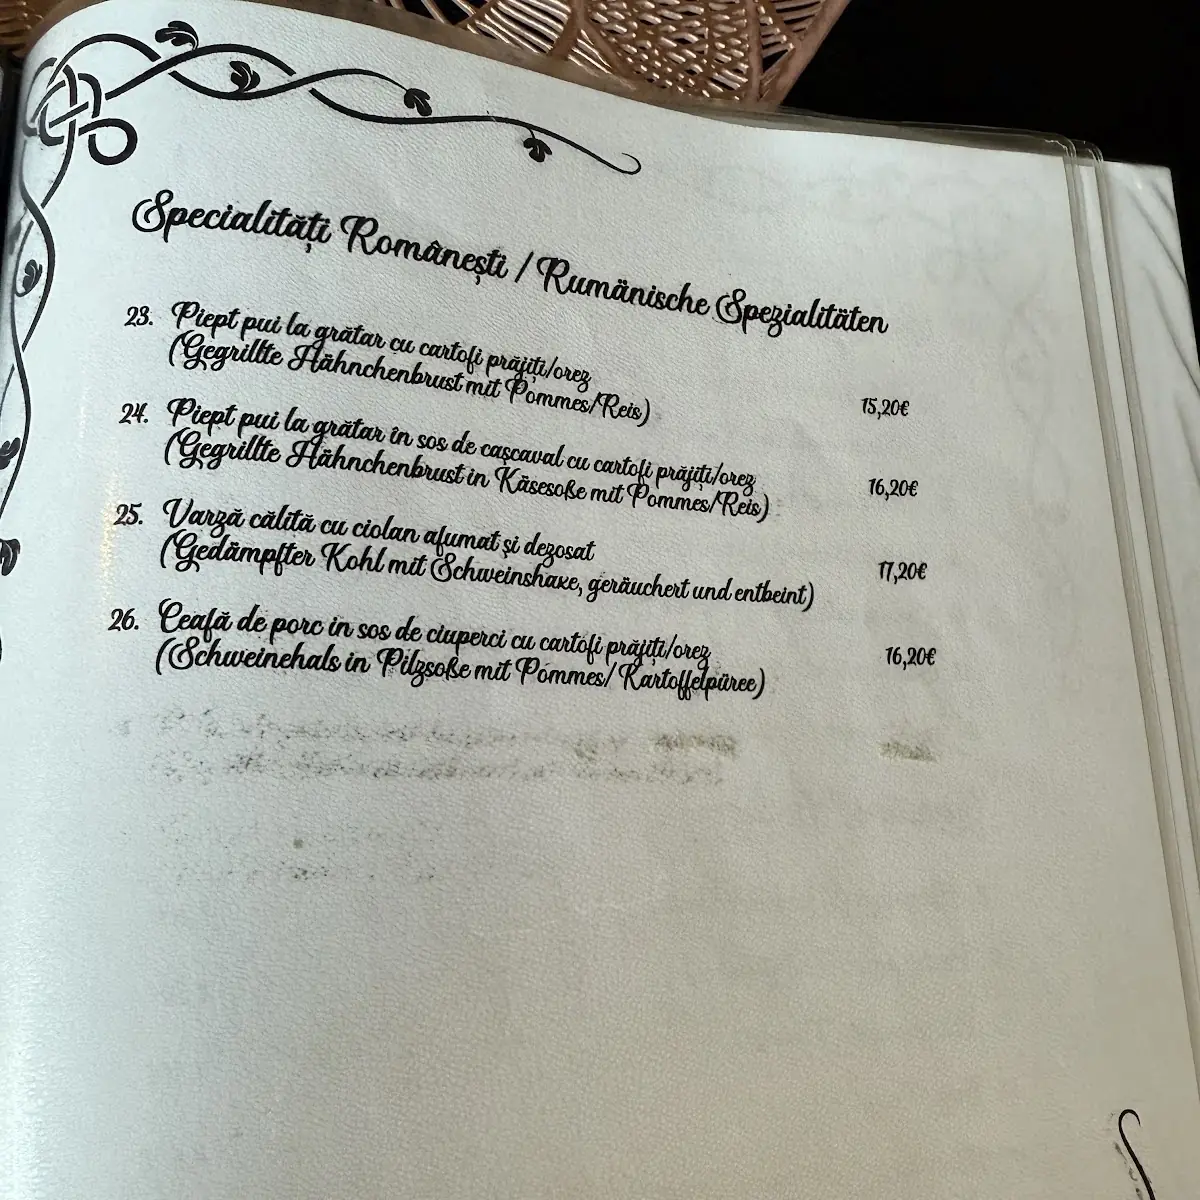 Specialități Românești / Rumänische Spezialitäten
23. Piept pui la grătar cu cartofi prăjiți/orez
(Gegrillte Hähnchenbrust mit Pommes/Reis) 15,20€
24. Piept pui la grătar în sos de cașcaval cu cartofi prăjiți/orez
(Gegrillte Hähnchenbrust in Käsesoße mit Pommes/Reis) 16,20€
25. Varză călită cu ciolan afumat și dezosat
(Gedämpfter Kohl mit Schweinshaxe, geräuchert und entbeint) 17,20€
26. Ceafă de porc in sos de ciuperci cu cartofi prăjiți/orez
(Schweinehals in Pilzsoße mit Pommes/ Kartoffelpüree) 16,20€